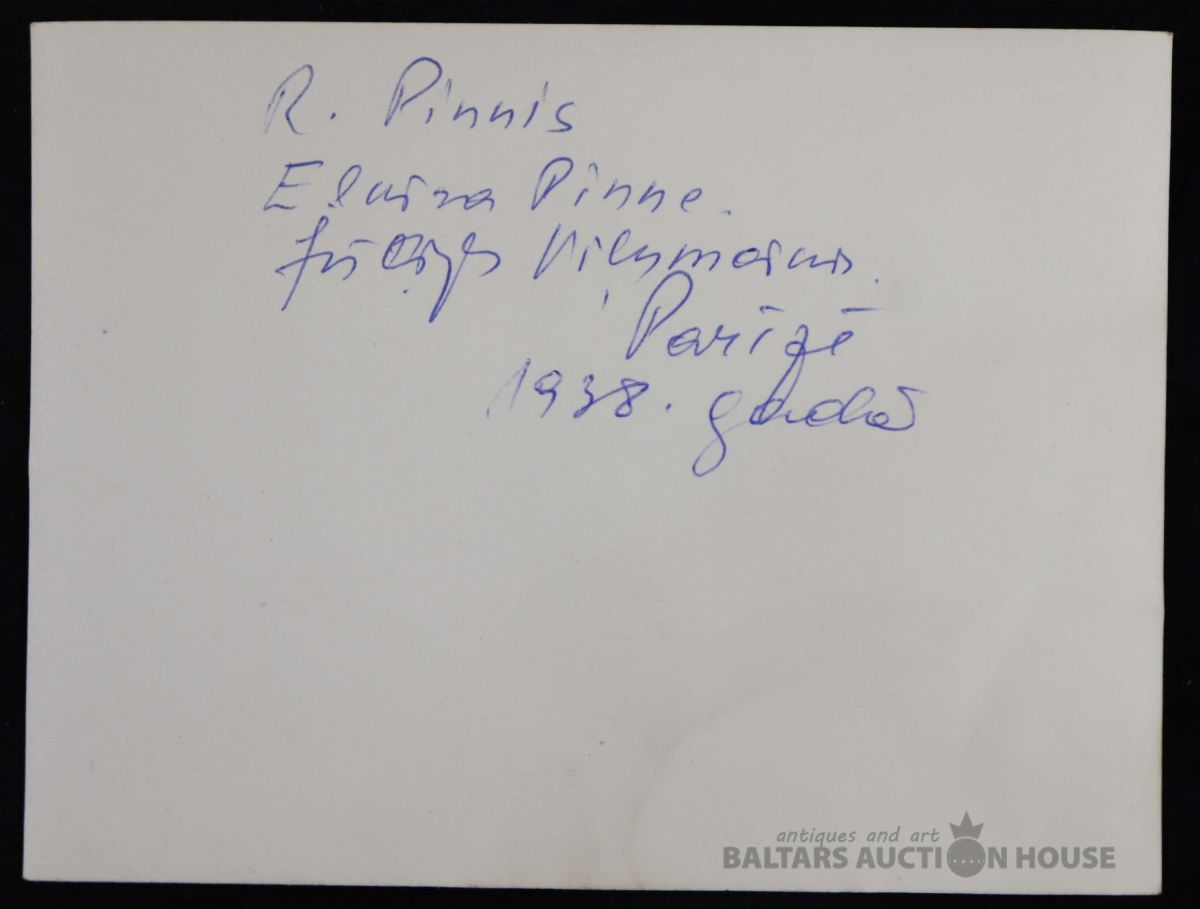 R. Pinnis
Elvīra Pinne.
Jūlijs Vilumainis.
Parīzē
1938. gadā
antiques and art
BALTARS AUCTION HOUSE